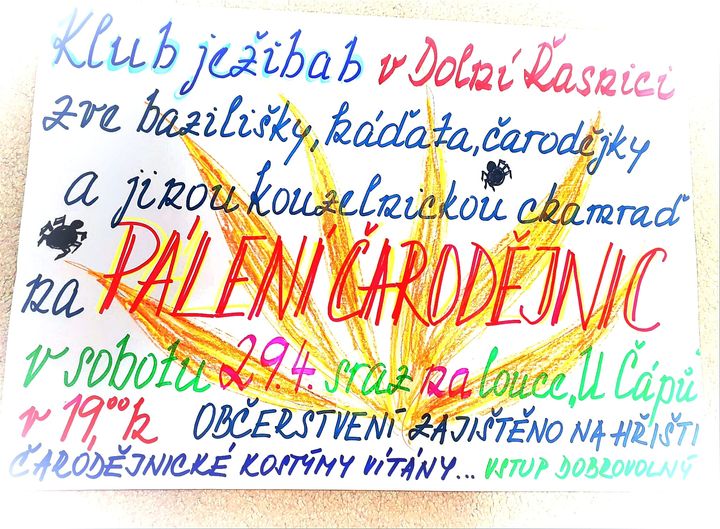 Klub ježibab v Dolní Řasnici
zve bazilišky, káďata, čarodějky
a jinou kouzelnickou chamraď
na PÁLENÍ ČARODĚJNIC
v sobotu 29.4. sraz na louce „U Čápů"
v 19,00h OBČERSTVENÍ ZAJIŠTĚNO NA HŘIŠTI
ČARODĚJNICKÉ KOSTÝMY VÍTÁNY... VSTUP DOBROVOLNÝ